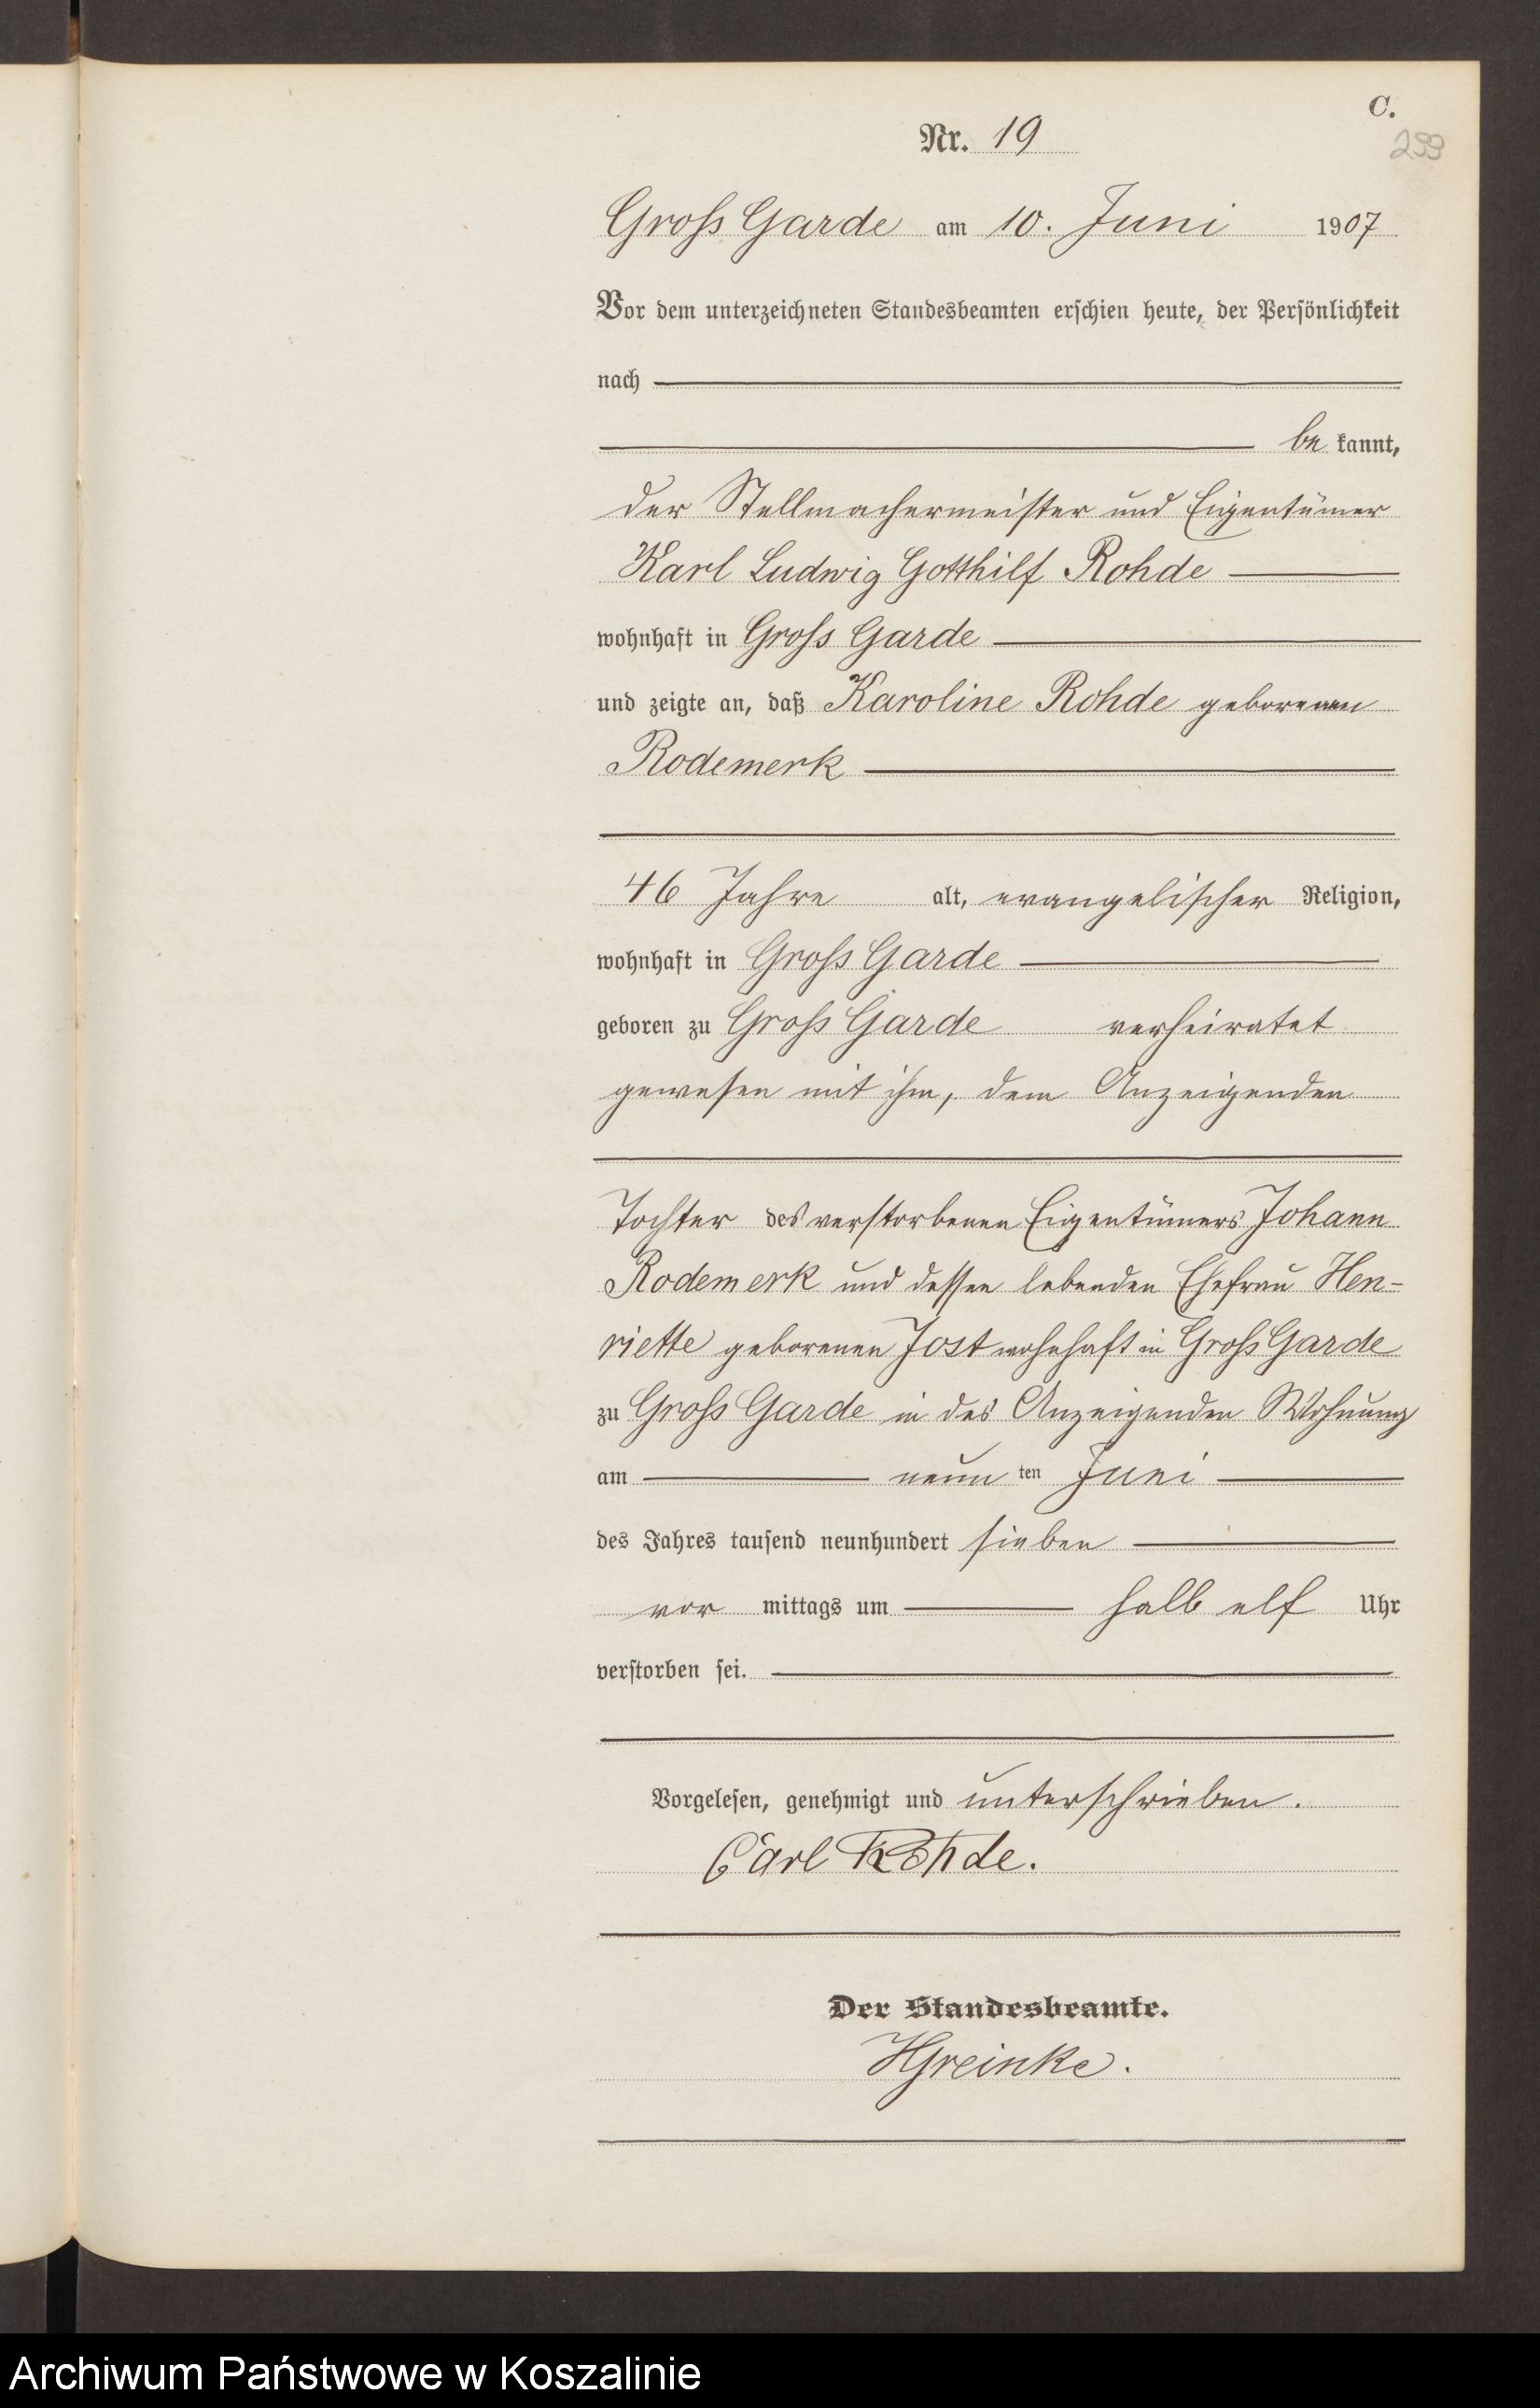 C.
Nr. 19
Groß Garde am 10. Juni 1907
Vor dem unterzeichneten Standesbeamten erschien heute, der Persönlichkeit
nach
be kannt,
der Stellmachermeister und Eigentümer
Karl Ludwig Gotthilf Rohde
wohnhaft in Groß Garde
und zeigte an, daß Karoline Rohde geborenen
Rodemerk
46 Jahre alt, evangelischer Religion,
wohnhaft in Groß Garde
geboren zu Groß Garde verheiratet
gewesen mit ihm, dem Anzeigenden
Tochter des verstorbenen Eigentümers Johann
Rodemerk und dessen lebenden Ehefrau Hen-
riette geborenen Jost wohnhaft in Groß Garde
zu Groß Garde in des Anzeigenden Wohnung
am neun ten Juni
des Jahres tausend neunhundert sieben
vor mittags um halb elf Uhr
verstorben sei.
Vorgelesen, genehmigt und unterschrieben.
Carl Rohde.
Der Standesbeamte.
HGreinke.
Archiwum Państwowe w Koszalinie